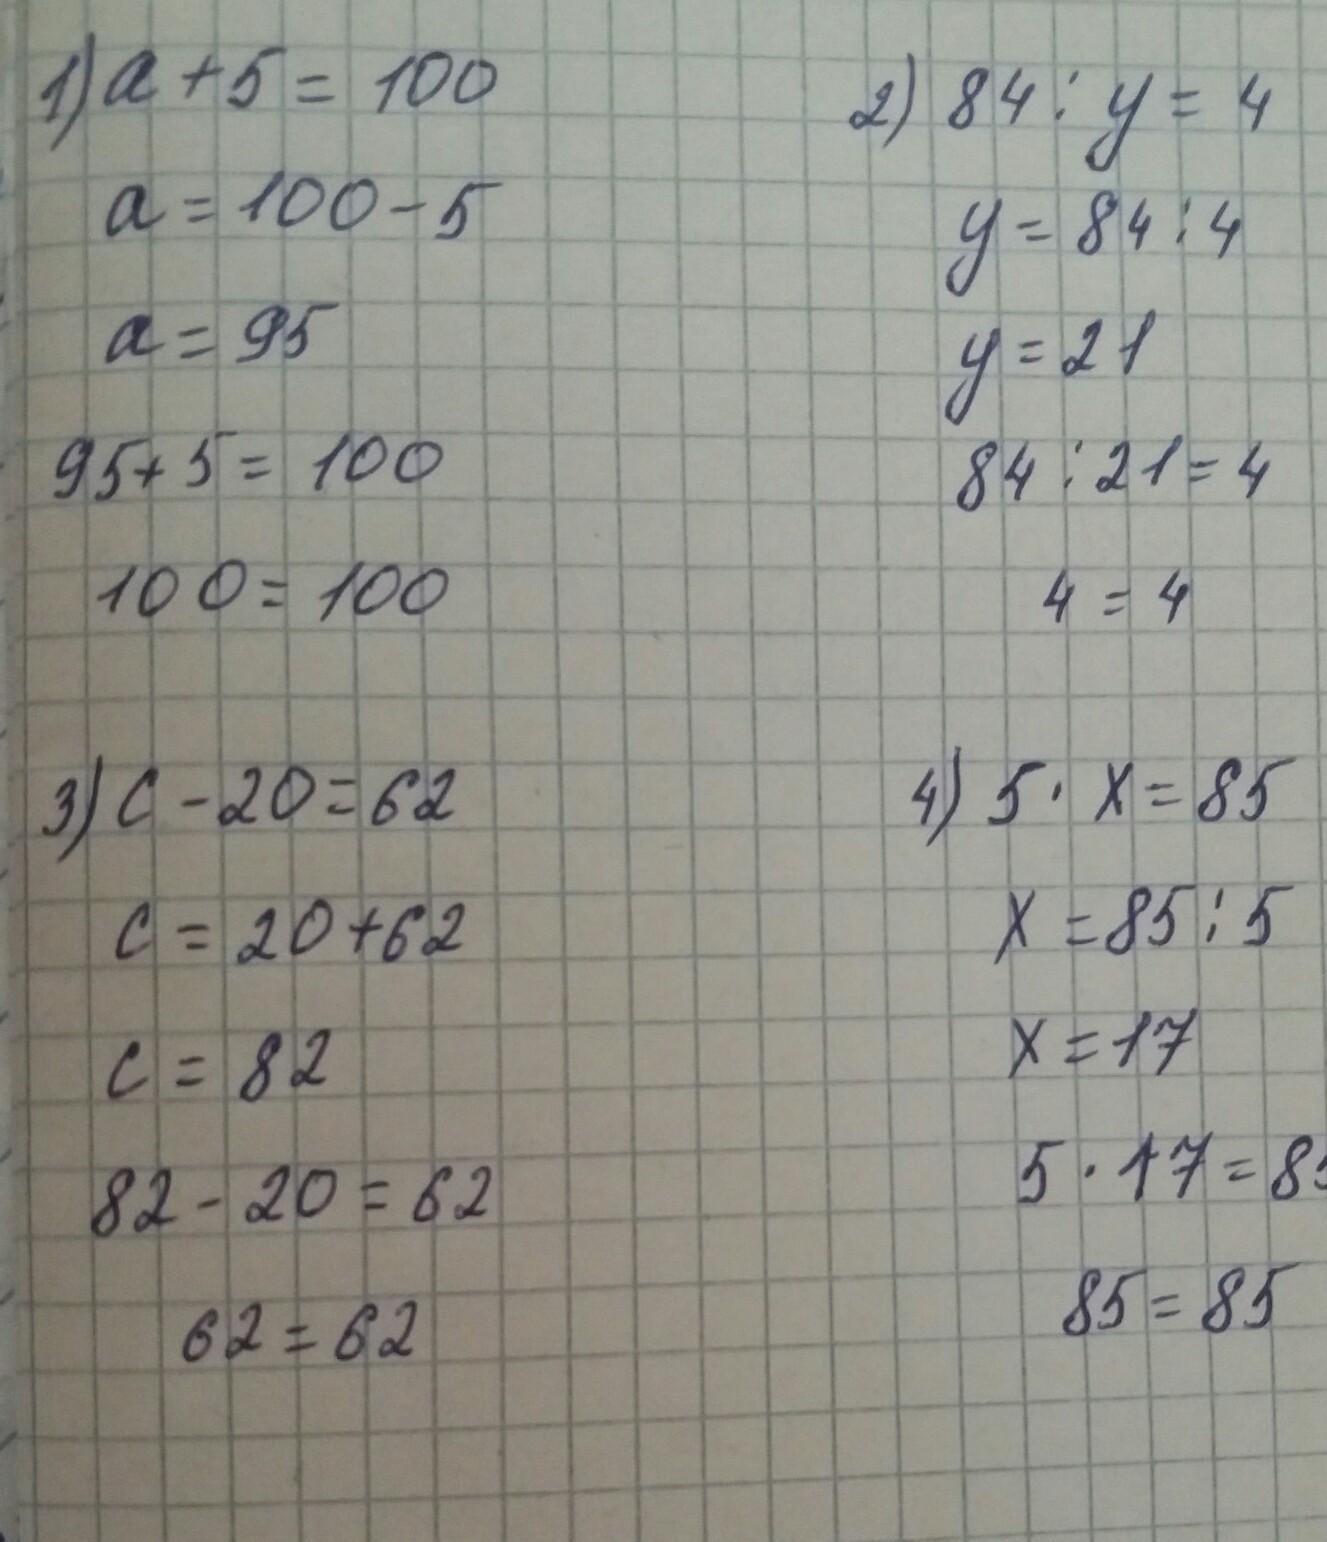 1) a + 5 = 100
a = 100 - 5
a = 95
95 + 5 = 100
100 = 100
2) 84 : y = 4
y = 84 : 4
y = 21
84 : 21 = 4
4 = 4
3) c - 20 = 62
c = 20 + 62
c = 82
82 - 20 = 62
62 = 62
4) 5 · x = 85
x = 85 : 5
x = 17
5 · 17 = 85
85 = 85